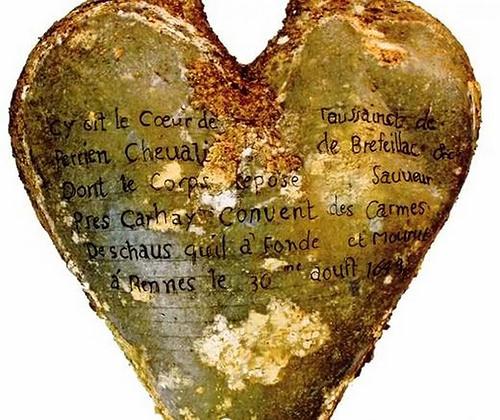 Cy git le Coeur de Toussainct de
Perrien Chevali de Brefeillac
Dont le Corps Repose Sauveur
Pres Carhay Convent des Carmes
Deschaus quil a Fonde et Mourut
á Rennes le 30 me aoust 1649